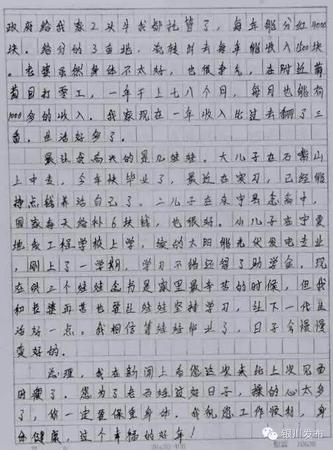 政府给我家2头牛我都托管了，每年能分红4000
块。给分的3亩地，流转出去每年能收入
块。老婆虽然身体不太好，也很争气，在附近葡
萄园打零工，一年干上七八个月，每月也能有
1000多的收入。我家现在一年收入比过去翻了三
番，生活好多了。
最让我高兴的是几个娃娃。大儿子在石嘴山
上中专，今年快毕业了，最近在实习，已经能
挣点钱养活自己了。二儿子在永宁县念高中，
国家每天给补6块钱，也很好。小儿子在宁夏
地质工程学校上学，读的太阳能光伏发电专业
，刚上了一学期，学习不错还领了助学金。现
在供三个娃娃念书是家里最辛苦的时候，但我
和老婆再苦也要让娃娃坚持学习，让下一代生
活好一点。我相信等娃娃毕业了，日子会慢慢
变好的。
总理，我在新闻上看您这次来北上次见面
时瘦了。您为了老百姓过好日子，操的心太多
了，你一定要保重身体。我祝您工作顺利，身
体健康，过个幸福的好年！
银川发布